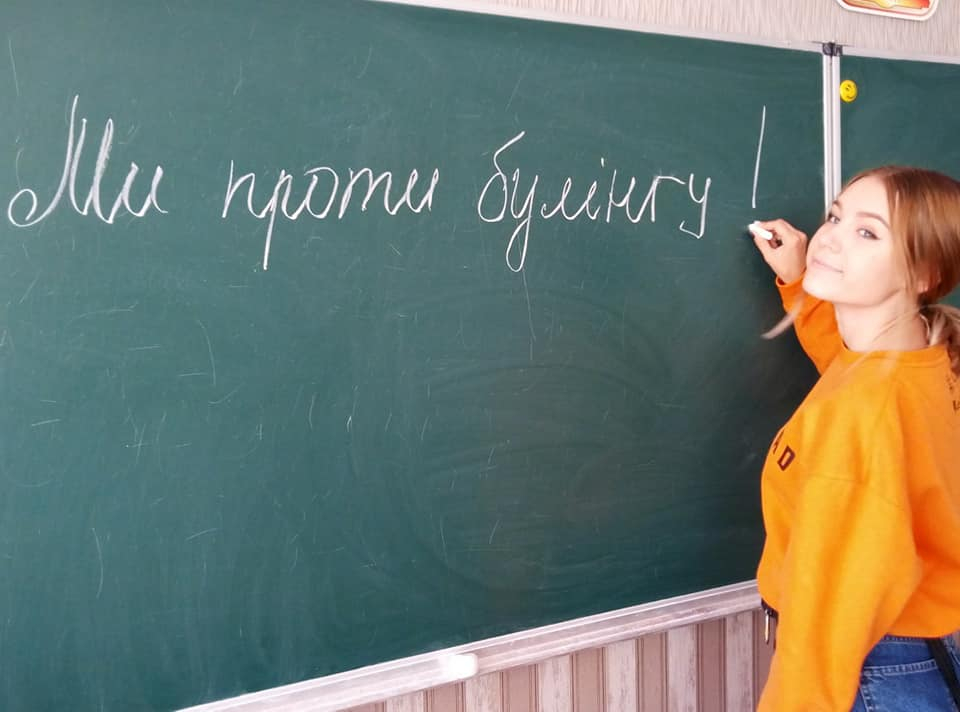 Ми проти булінгу!
AD